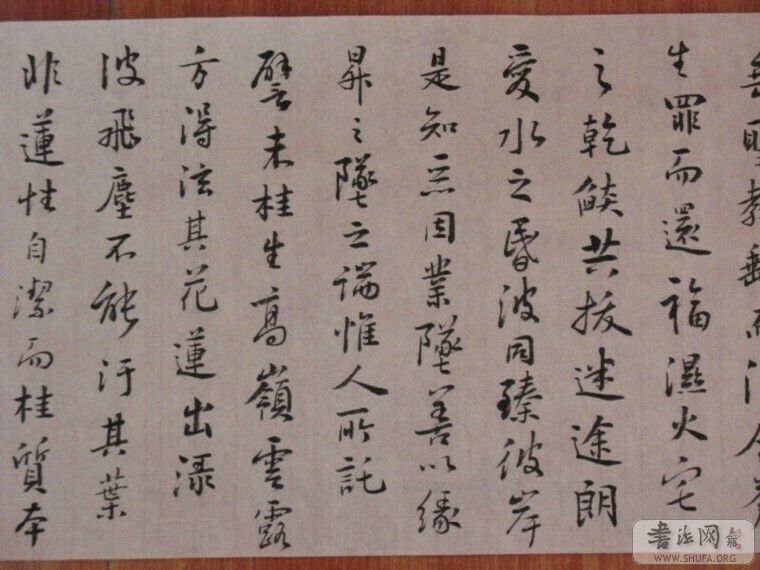 聖教而全
生罪而還福濕火宅
之乾燄共拔迷途朗
愛水之昏波同臻彼岸
是知惡因業墜善以緣
昇々墜之端惟人所託
譬夫桂生高嶺雲露
方得泫其花蓮出淥
波飛塵不能汙其葉
非蓮性自潔而桂質本
書法网
WWW.SHUFA.ORG